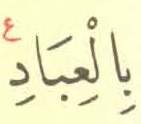 بِالْعِبَادِ ع